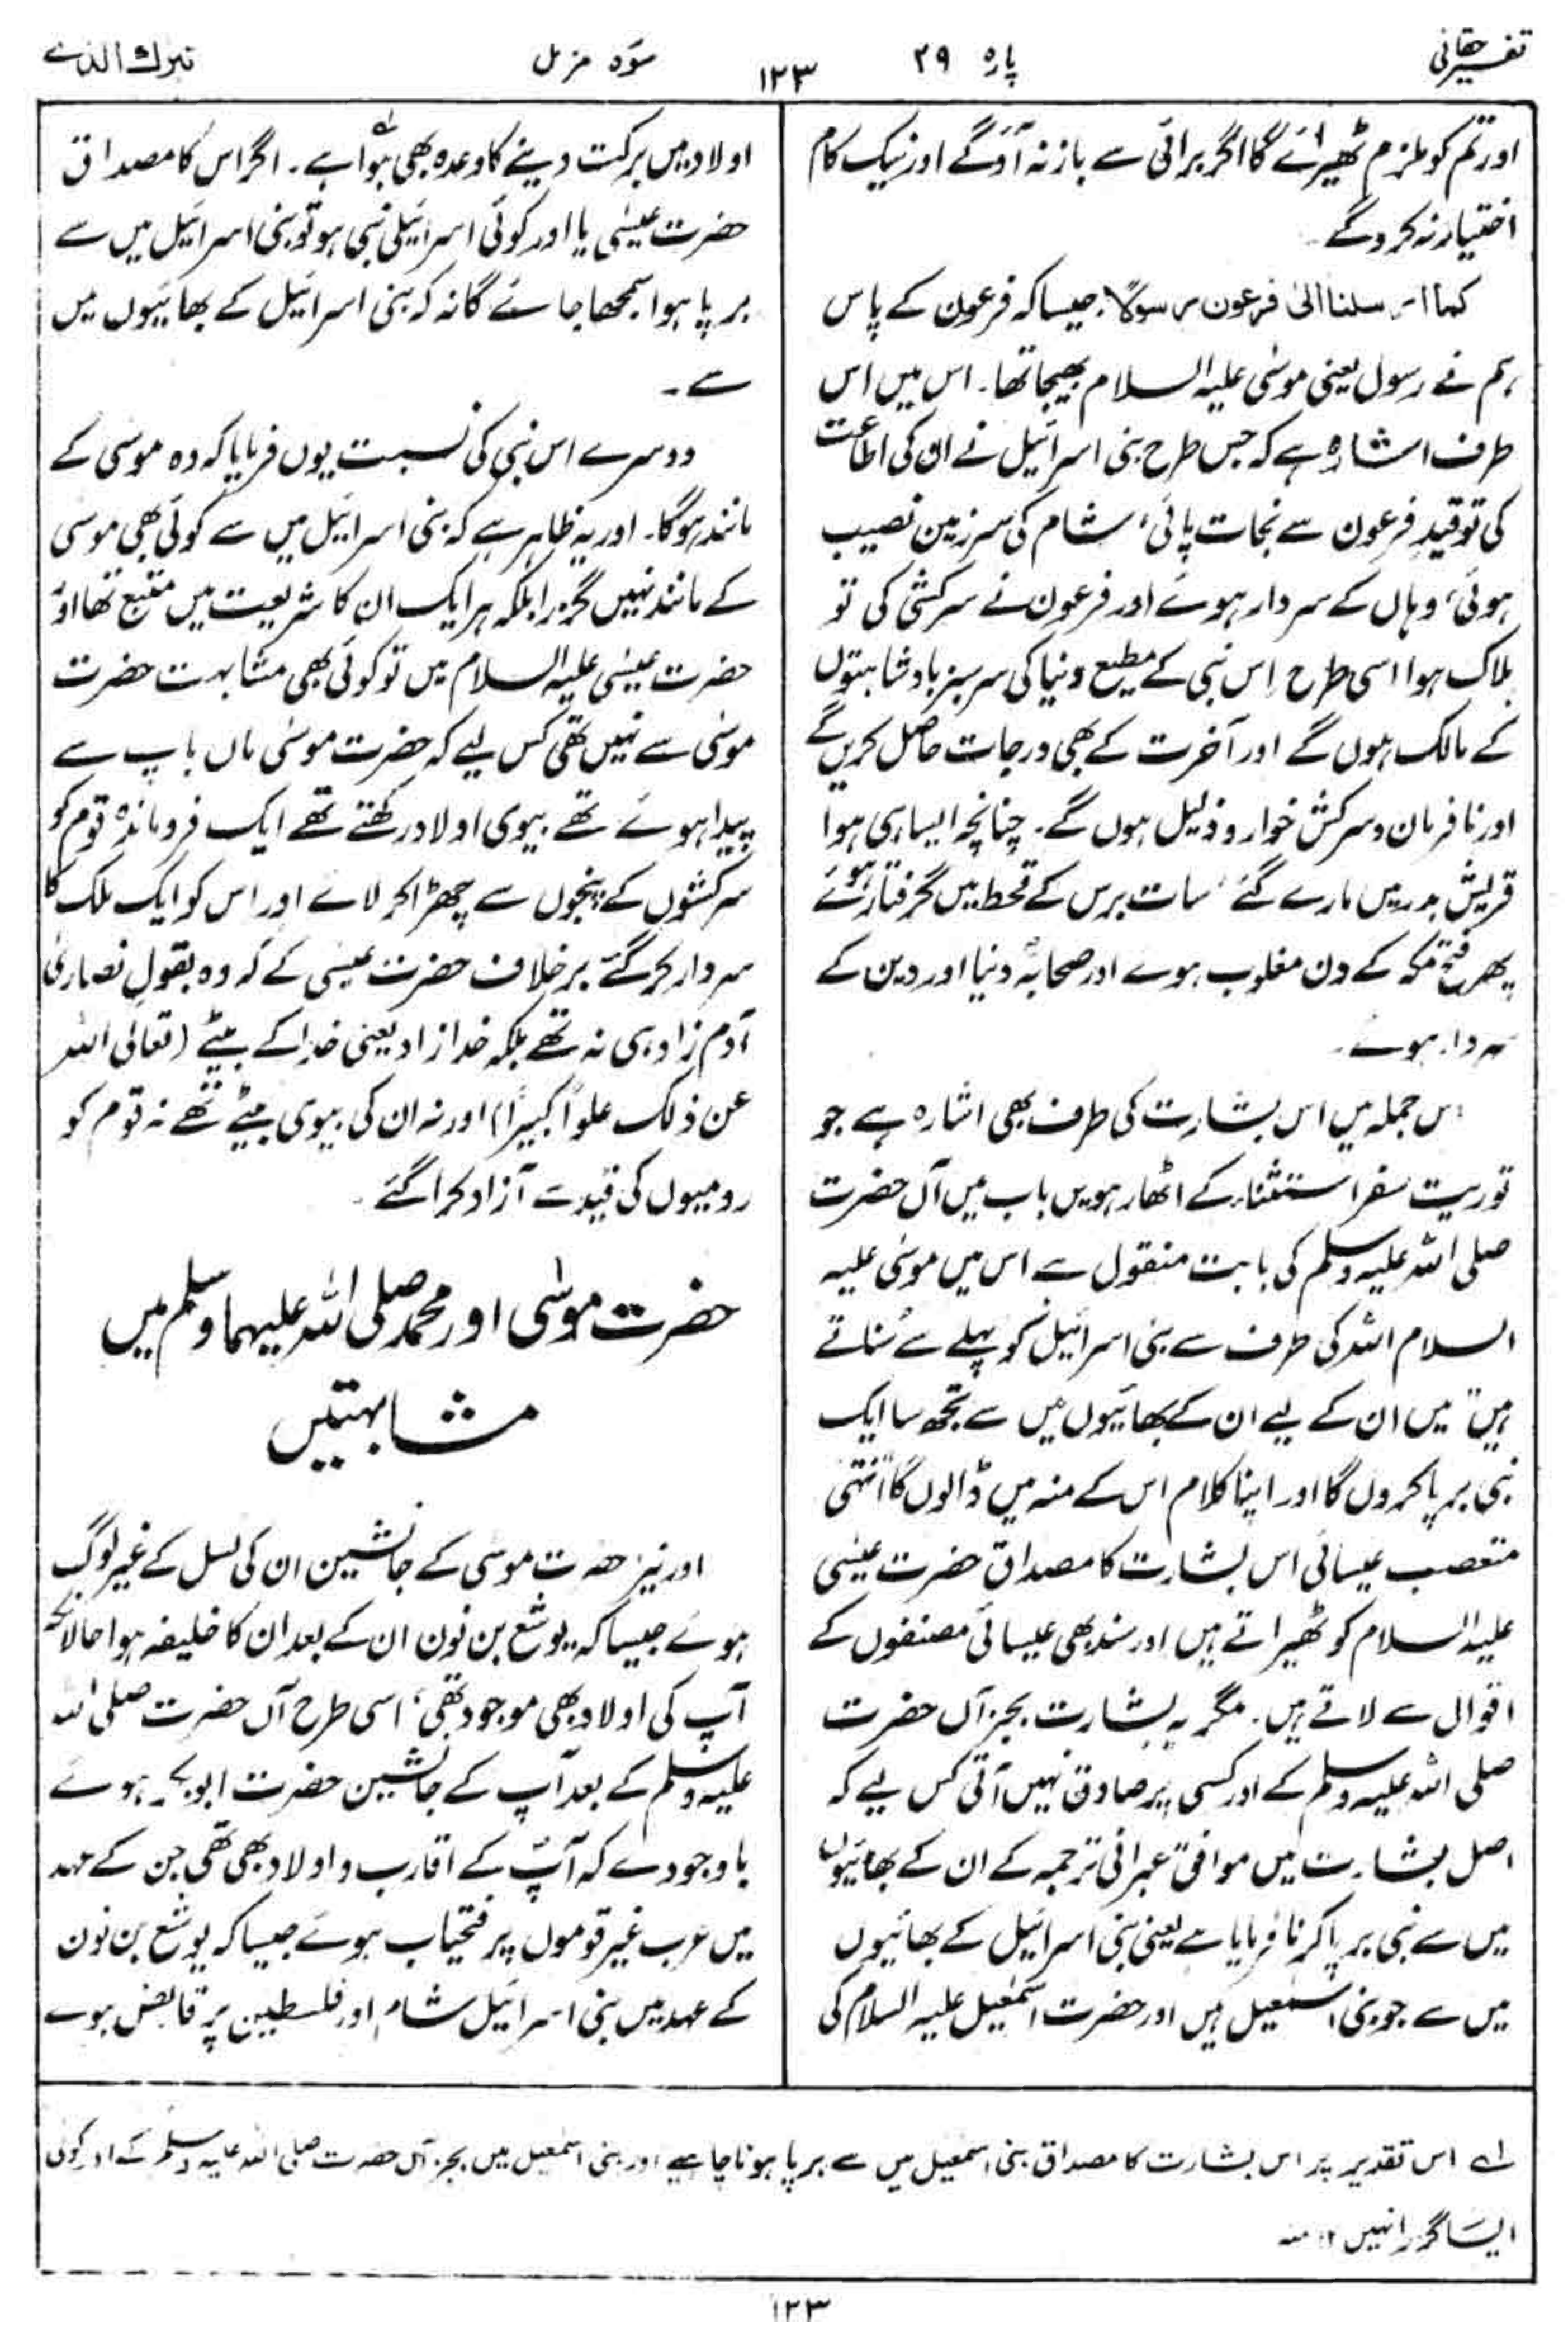 تفسیر حقانی
پارہ ۲۹
۱۲۳
سورہ مزمل
تبرک الذی
اور تم کو ملزم ٹھیرائے گا اگر برائی سے باز نہ آؤ گے اور نیک کام
اختیار نہ کرو گے۔
کما ارسلنا الیٰ فرعون رسولًا؛ جیسا کہ فرعون کے پاس
ہم نے رسول یعنی موسٰی علیہ السلام بھیجا تھا۔ اس میں اس
طرف اشارہ ہے کہ جس طرح بنی اسرائیل نے ان کی اطاعت
کی تو قیدِ فرعون سے نجات پائی، شام کی سرزمین نصیب
ہوئی، وہاں کے سردار ہوئے اور فرعون نے سرکشی کی تو
ہلاک ہوا اسی طرح اس نبی کے مطیع دنیا کی سرسبز بادشاہتوں
کے مالک ہوں گے اور آخرت کے بھی درجات حاصل کریں گے
اور نافرمان و سرکش خوار و ذلیل ہوں گے۔ چنانچہ ایسا ہی ہوا
قریش بدر میں مارے گئے، سات برس کے قحط میں گرفتار ہوئے
پھر فتح مکہ کے دن مغلوب ہوے اور صحابہؓ دنیا اور دین کے
سردار ہوئے۔
اس جملہ میں اس بشارت کی طرف بھی اشارہ ہے جو
توریت سفر استثناء کے اٹھارہویں باب میں آں حضرت
صلی اللہ علیہ وسلم کی بابت منقول ہے اس میں موسٰی علیہ
السلام اللہ کی طرف سے بنی اسرائیل کو پہلے سے سُناتے
ہیں "میں ان کے لیے ان کے بھائیوں میں سے تجھ سا ایک
نبی برپا کروں گا اور اپنا کلام اس کے منہ میں ڈالوں گا" انتہٰی
متعصب عیسائی اس بشارت کا مصداق حضرت عیسٰی
علیہ السلام کو ٹھیراتے ہیں اور سند بھی عیسائی مصنفوں کے
اقوال سے لاتے ہیں۔ مگر یہ بشارت بجز آں حضرت
صلی اللہ علیہ وسلم کے اور کسی پر صادق نہیں آتی کس لیے کہ
اصل بشارت میں موافق عبرانی ترجمہ کے ان کے بھائیوں
میں سے نبی برپا کرنا فرمایا ہے یعنی بنی اسرائیل کے بھائیوں
میں سے جو بنی اسمٰعیل ہیں اور حضرت اسمٰعیل علیہ السلام کی
اولاد میں برکت دینے کا وعدہ بھی ہوا ہے۔ اگر اس کا مصداق
حضرت عیسٰی یا اور کوئی اسرائیلی نبی ہو تو بنی اسرائیل میں سے
برپا ہوا سمجھا جائے گا نہ کہ بنی اسرائیل کے بھائیوں میں
سے۔
دوسرے اس نبی کی نسبت یوں فرمایا کہ وہ موسٰی کے
مانند ہوگا۔ اور یہ ظاہر ہے کہ بنی اسرائیل میں سے کوئی بھی موسٰی
کے مانند نہیں گزرا بلکہ ہر ایک ان کا شریعت میں متبع تھا اور
حضرت عیسٰی علیہ السلام میں تو کوئی بھی مشابہت حضرت
موسٰی سے نہیں تھی کس لیے کہ حضرت موسٰی ماں باپ سے
پیدا ہوئے تھے بیوی اولاد رکھتے تھے ایک فروماندہ قوم کو
سرکشوں کے پنجوں سے چھڑا کر لائے اور اس کو ایک ملک کا
سردار کر گئے برخلاف حضرت عیسٰی کے کہ وہ بقول نصاریٰ
آدم زاد ہی نہ تھے بلکہ خدا زاد یعنی خدا کے بیٹے (تعالی اللہ
عن ذلک علوًا کبیرًا) اور نہ ان کی بیوی بیٹے تھے نہ قوم کو
رومیوں کی قید سے آزاد کرا گئے۔
حضرت موسٰی اور محمد صلی اللہ علیہما وسلم میں
مشابہتیں
اور نیز حضرت موسٰی کے جانشین ان کی نسل کے غیر لوگ
ہوئے جیسا کہ یوشع بن نون ان کے بعد ان کا خلیفہ ہوا حالانکہ
آپ کی اولاد بھی موجود تھی، اسی طرح آں حضرت صلی اللہ
علیہ وسلم کے بعد آپ کے جانشین حضرت ابوبکر ہوئے
باوجودے کہ آپؐ کے اقارب و اولاد بھی تھی جن کے عہد
میں عرب غیر قوموں پر فتحیاب ہوئے جیسا کہ یوشع بن نون
کے عہد میں بنی اسرائیل شام اور فلسطین پر قابض ہوے
لے اس تقدیر پر اس بشارت کا مصداق بنی اسمٰعیل میں سے برپا ہونا چاہیے اور بنی اسمٰعیل میں بجز آں حضرت صلی اللہ علیہ وسلم کے اور کوئی
ایسا گزرا نہیں ۱۲ منہ
۱۲۳